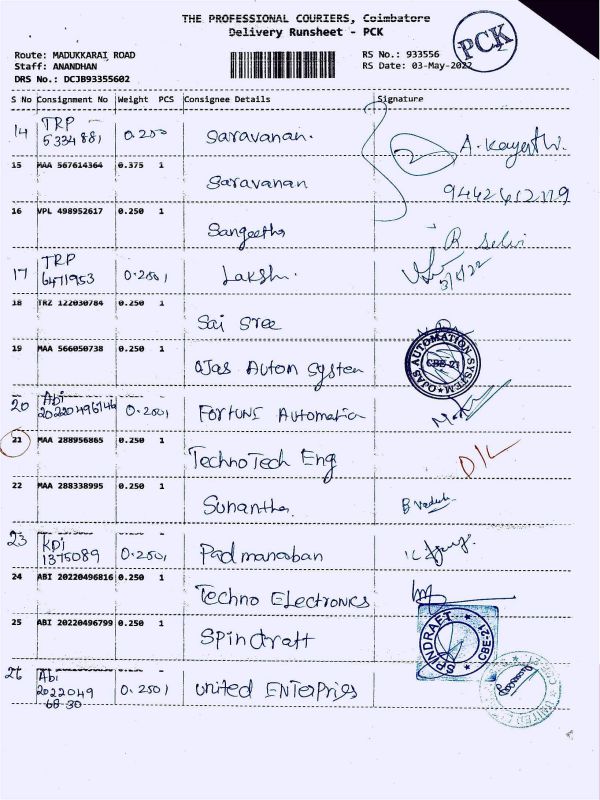 THE PROFESSIONAL COURIERS, Coimbatore
Delivery Runsheet - PCK
PCK
Route: MADUKKARAI ROAD
Staff: ANANDHAN
DRS No.: DCJB93355602
RS No.: 933556
RS Date: 03-May-2022
S No Consignment No Weight PCS Consignee Details Signature
14 TRP 5334881 0.250 Saravanan.
15 MAA 567614364 0.375 1 Saravanan
16 VPL 498952617 0.250 1 Sangeetha
R Selvi
17 TRP 6471953 0.250 1 Lakshi.
3/5/22
18 TRZ 122030784 0.250 1 Sai Sree
19 MAA 566050738 0.250 1 Ojas Autom System
OJAS AUTOMATION SYSTEM CBE-21
20 Abi 20220496746 0.250 1 FORTUNI Automatia
21 MAA 288956865 0.250 1 TechnoTech Eng
D/L
22 MAA 288338995 0.250 1 Sunantha.
23 KDI 1375089 0.250 1 Padmanaban
24 ABI 20220496816 0.250 1 Techno ELectronics
25 ABI 20220496799 0.250 1 SPindraft
SPINDRAFT CBE-21
26 Abi 2022049 6830 0.250 1 united ENTerPries